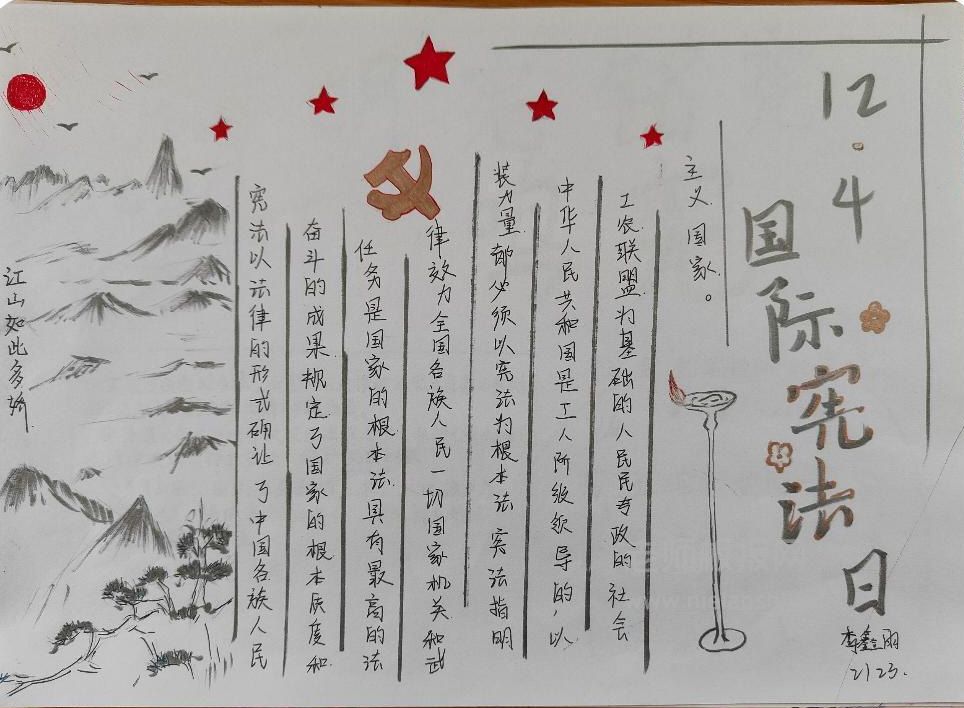 12·4
国际宪法日
宪法以法律的形式确认了中国各族人民
奋斗的成果规定了国家的根本质度和
任务是国家的根本法.具有最高的法
律效力全国各族人民一切国家机关和武
装力量都必须以宪法为根本法 宪法指明
中华人民共和国是工人阶级领导的,以
工农联盟为基础的人民民专政的社会
主义国家。
江山如此多娇
2123.